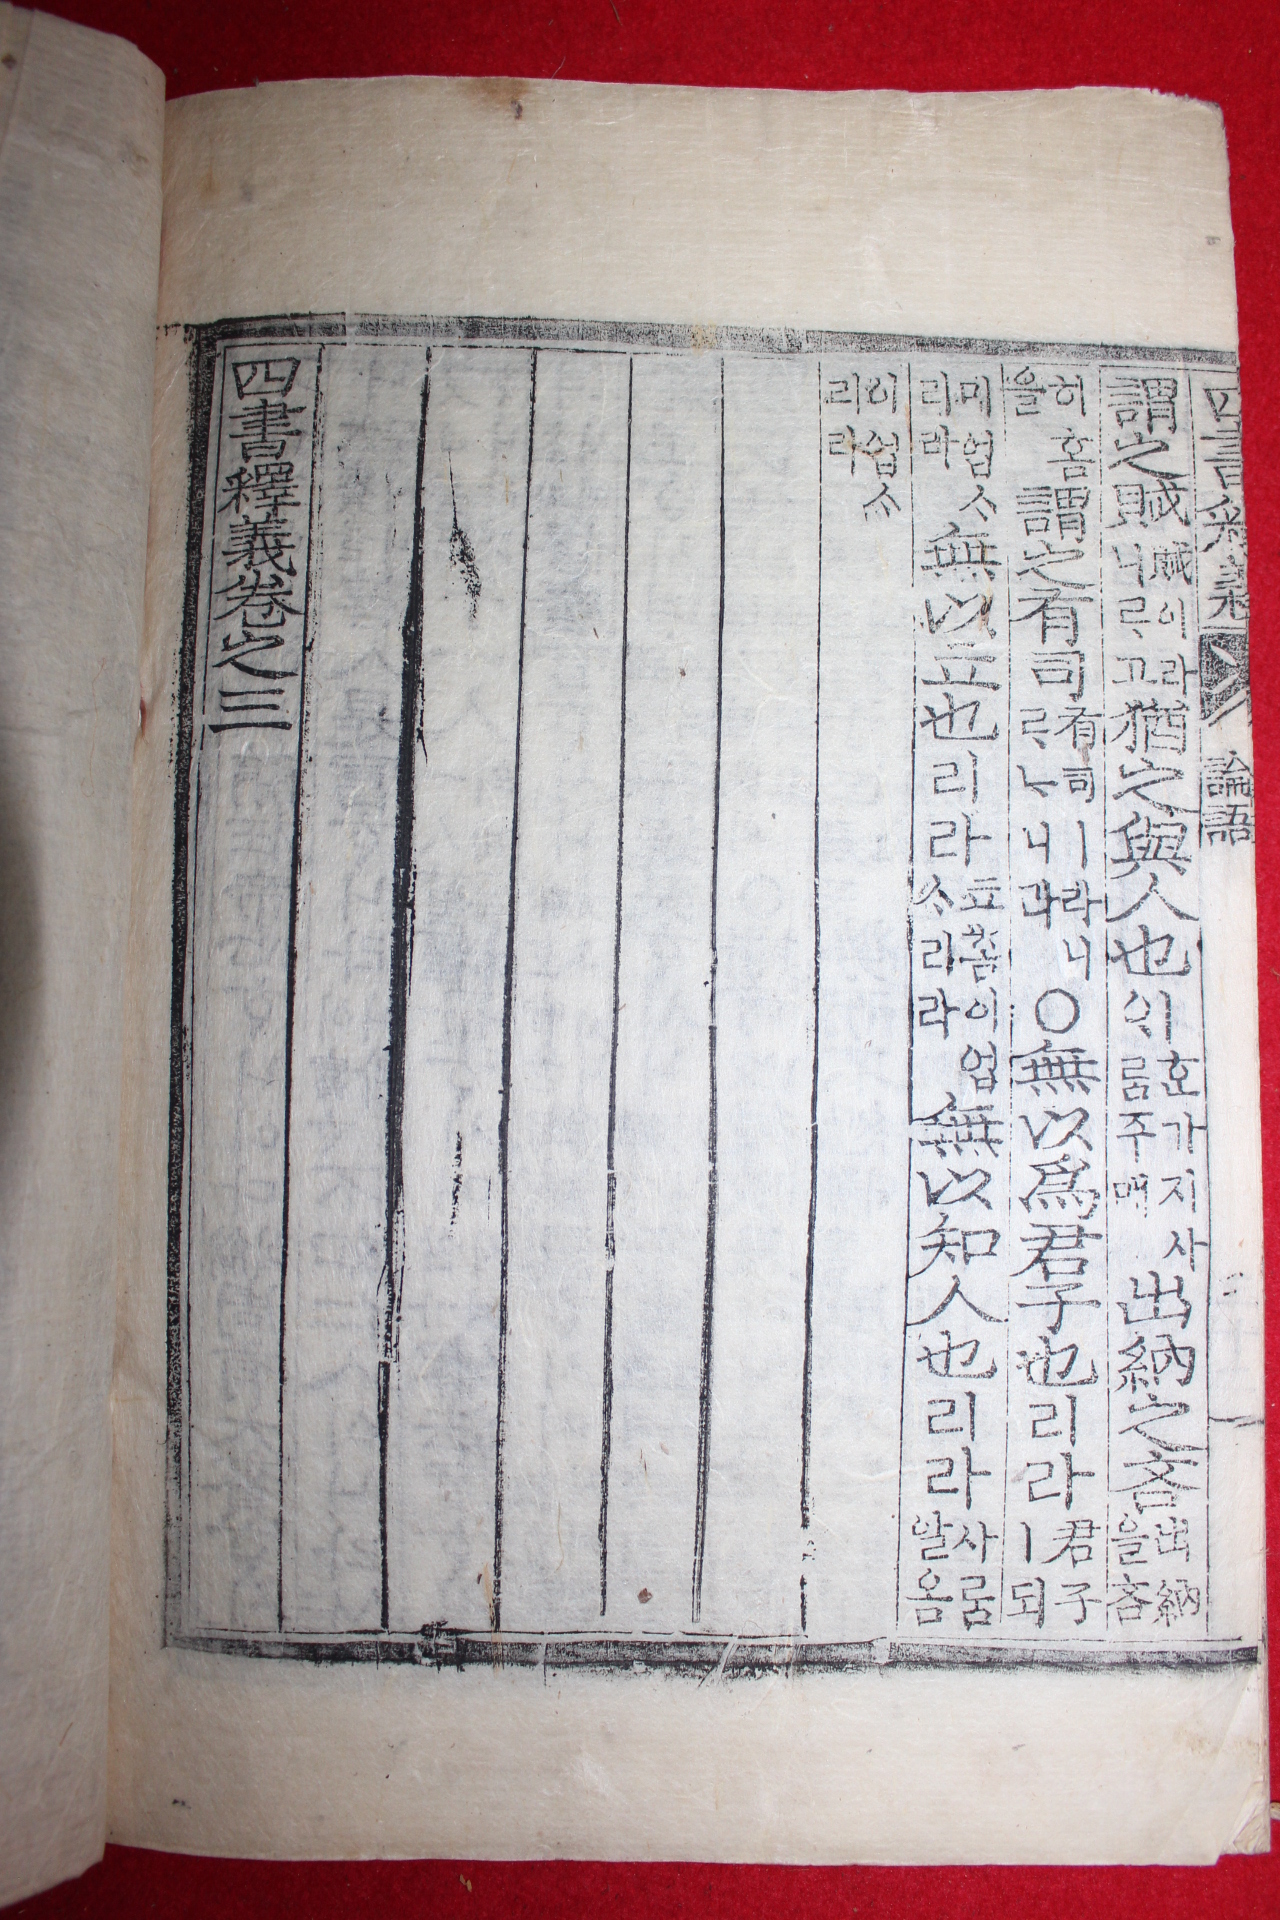 四書釋義 論語
謂之賊 賊이라 니ᄅᆞ고 猶之與人也 이혼가지사 ᄋᆡ룸주매 出納之吝 出納 을吝
히홈 을 謂之有司 有司ㅣ라니 ᄅᆞᄂᆞ니라 ○無以爲君子也리라 君子 ㅣ되
메업ᄉᆞ 리라 無以立也리라 이업 ᄉᆞ리라 無以知人也리라 사룸 알옴
이업ᄉᆞ 리라
四書釋義卷之三